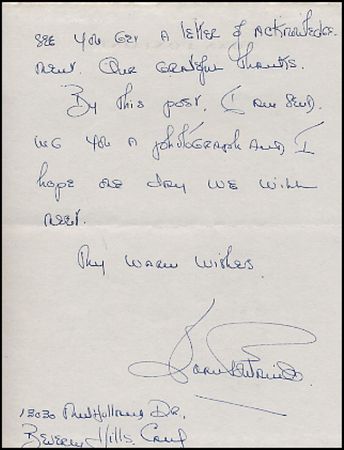 see you get a letter of acknowledge-
ment. Our grateful thanks.
By this post, I am send-
ing you a photograph and I
hope one day we will
meet.
My warm wishes.
13030 Mulholland Dr.
Beverly Hills, Calif